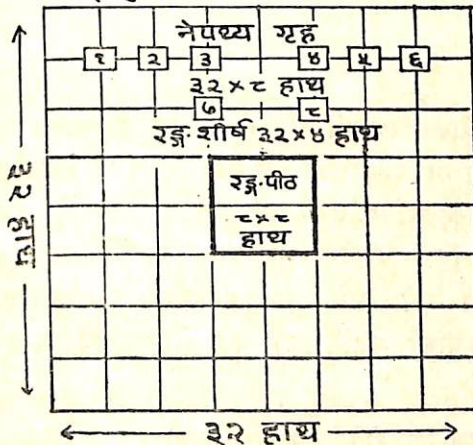 नेपथ्य गृह
१ २ ३ ४ ५ ६
३२ × ८ हाथ
७ ८
रङ्ग-शीर्ष ३२ × ४ हाथ
रङ्ग-पीठ
८ × ८
हाथ
३२ हाथ
३२ हाथ